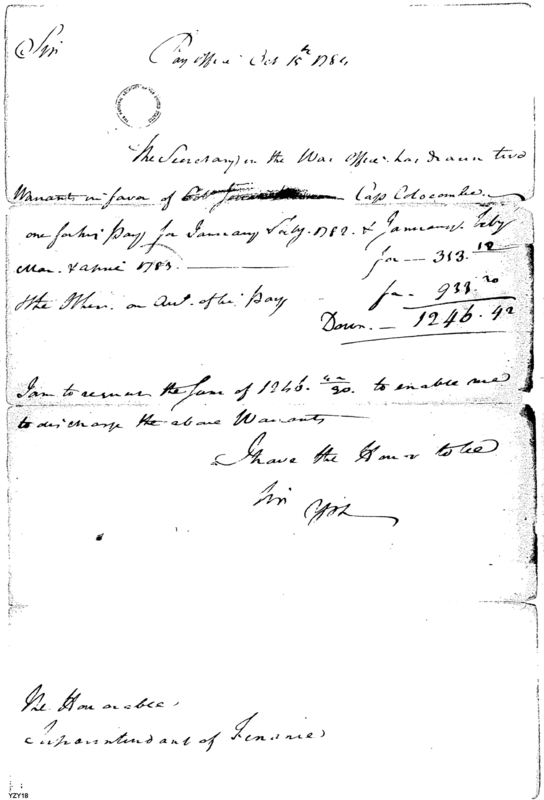 Sir
Pay Office Oct 15th 1784
The Secretary in the War Office has drawn two
Warrants in favor of Cap Colocombe
one for his Pay for January & Feby. 1782. & January, Feby
Mar. & April 1783. for — 313.12
& the Other on Acct. of his Pay for 933.20
Dorrs. — 1246.42
I am to request the Sum of 1246. /90. to enable me
to discharge the above Warrants
I have the Honor to be
Sir
The Honorable
Superintendant of Finance
YZY18